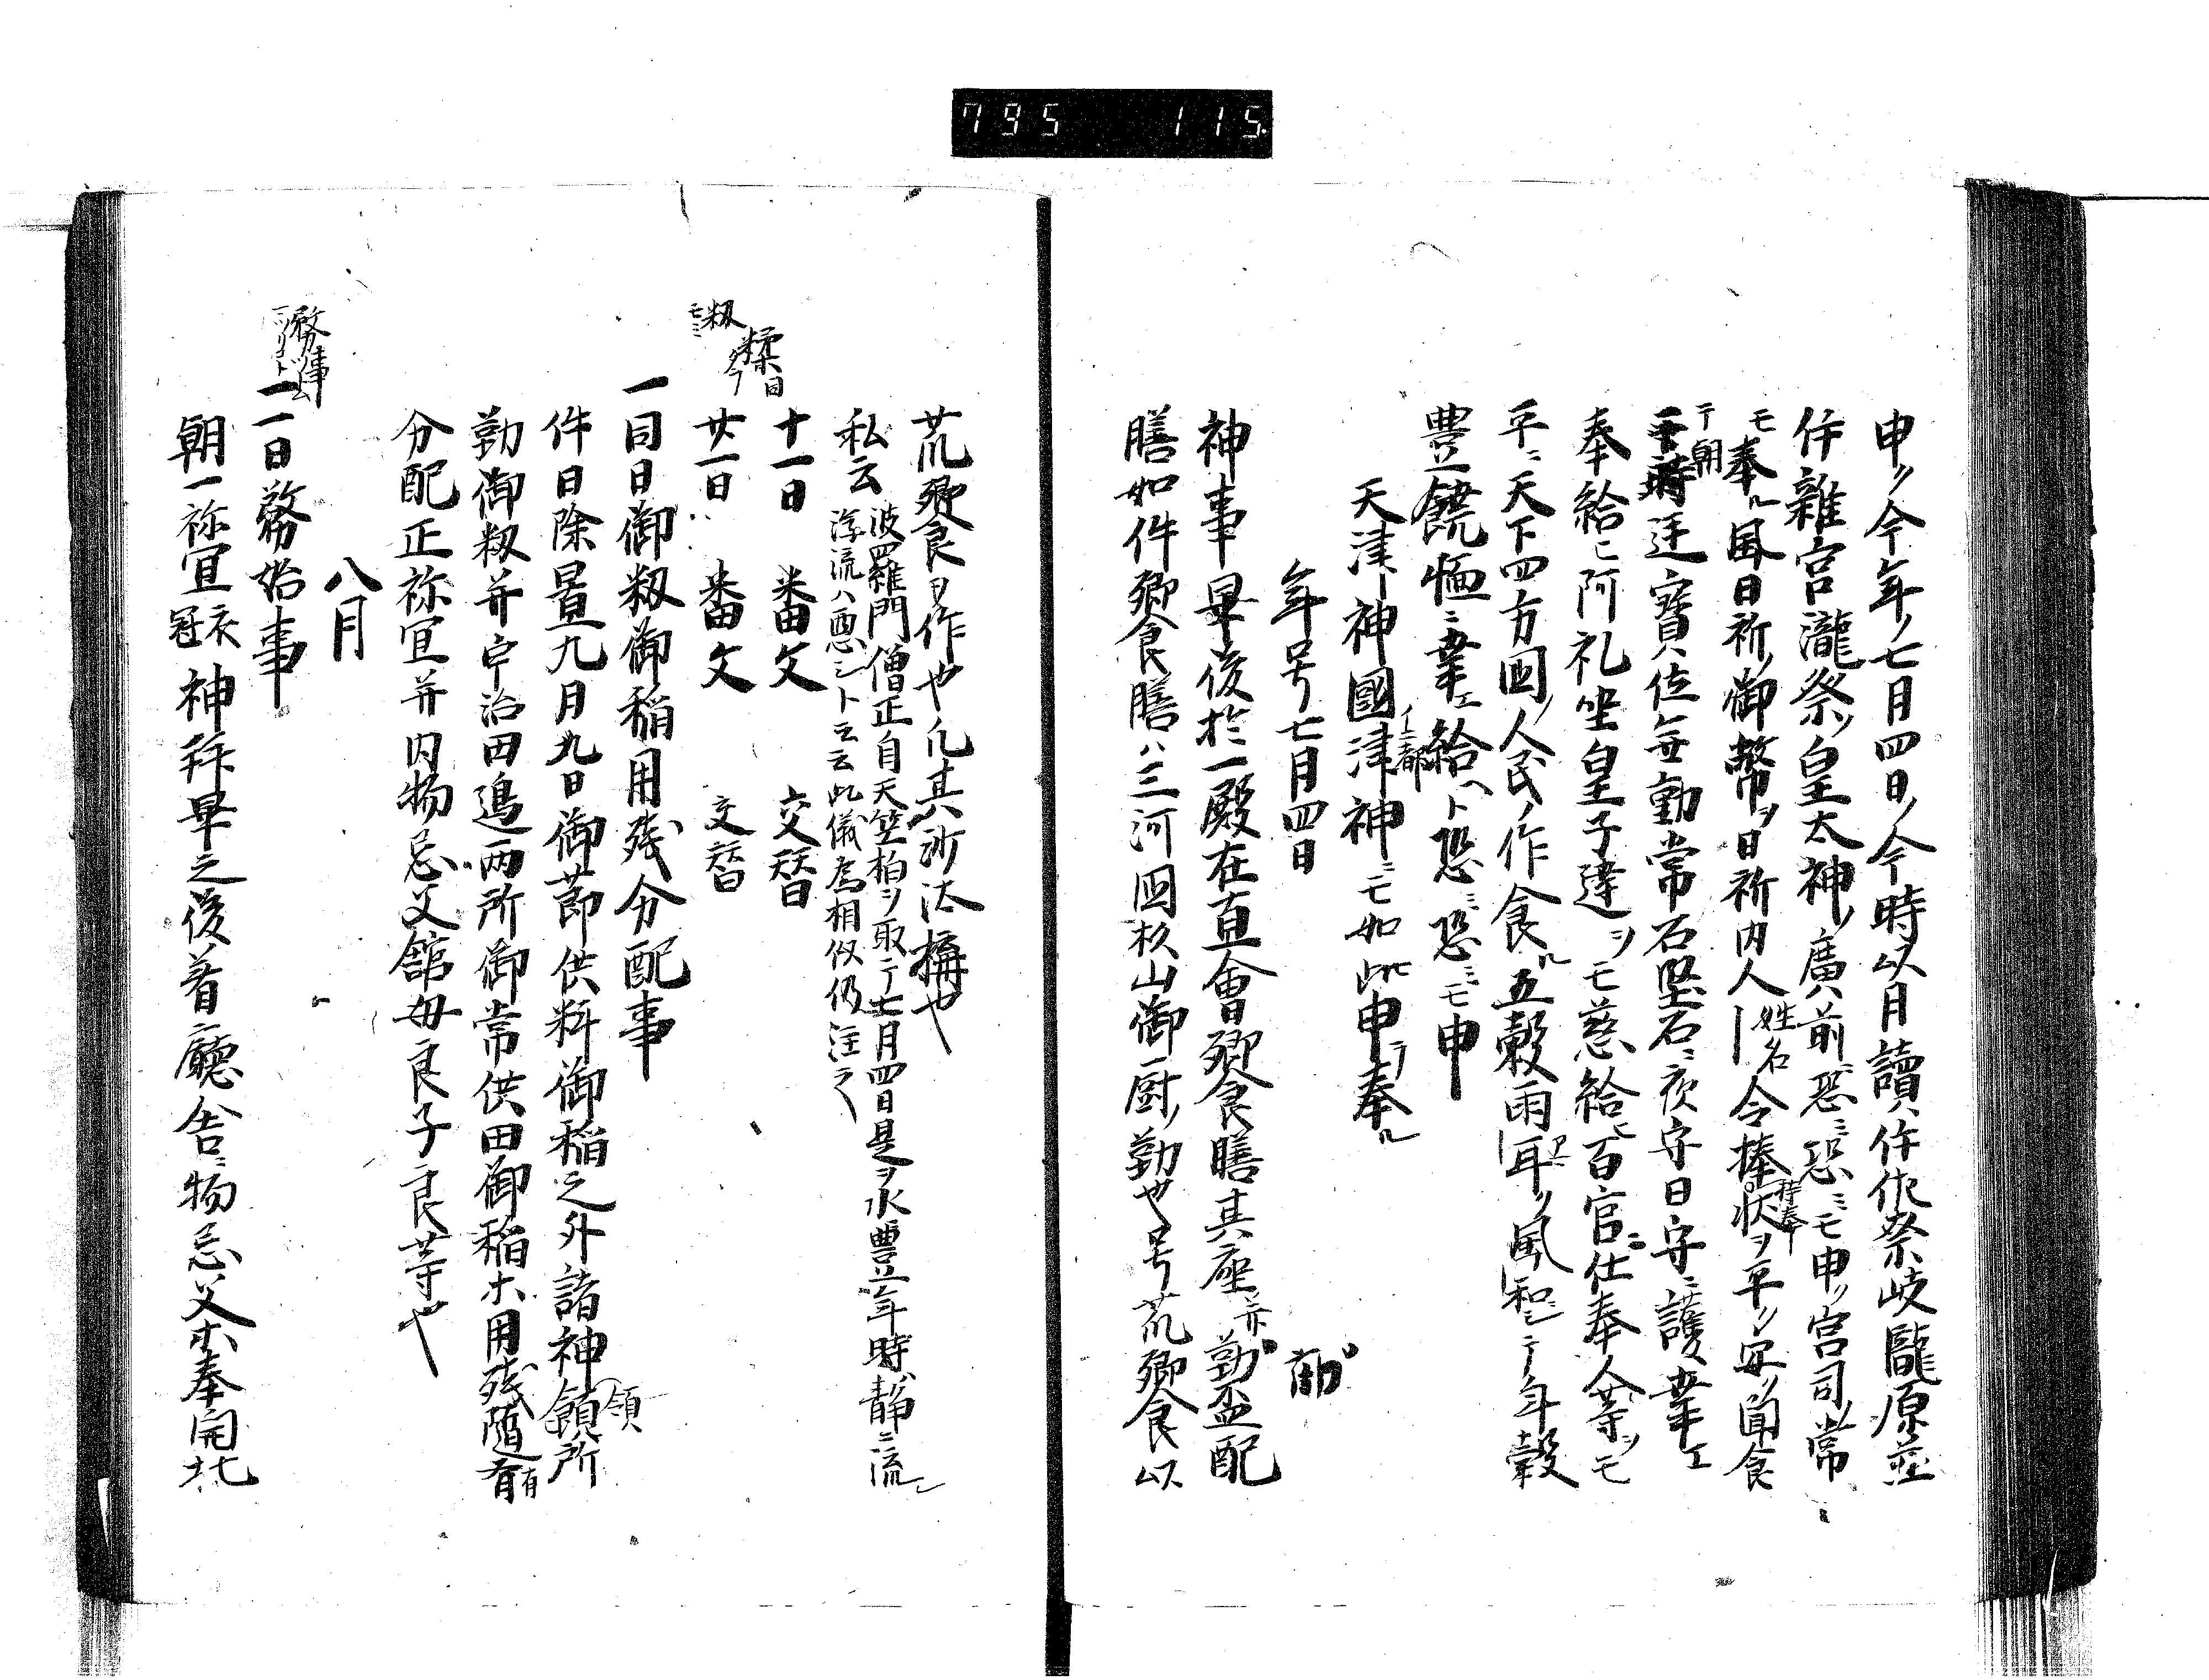 795 115
申ク今年ノ七月四日ノ今時以月讀伊佐奈岐瀧原並
伊雜宮瀧祭ノ皇太神ノ廣前ニ恐ミ恐ミモ申ク宮司常
モ奉ル風日祈ノ御幣ヲ日祈内人姓名令捧状ヲ平ク安ク聞食
テ朝廷寶位無動常石堅石ニ夜守日守ニ護幸エ
奉給ヒ阿礼坐皇子達ヲモ慈給ヒ百官仕奉人等ヲモ
平ニ天下四方國ノ人民ノ作食ル五穀雨耳ク風和シテ年穀
豊饒恤ニ幸エ給ヘト恐ミ恐ミモ申
天津神國津神ニモ如此申テ奉ル
年号七月四日
神事畢後於一殿在直會饗膳其座ニ亦勤盃配
膳如件饗膳ハ三河國杉山御厨ノ勤也号荒饗以
荒饗ヲ作也凡其所汰構也
私云 波羅門僧正自天竺柏ヲ取テ七月四日是ヲ水豊年時ハ靜ニ流
浮流ハ凶シト云云此儀為相似仍注之
十一日 番文 交替
廿一日 番文 交替
糅同
籾
一同日御籾御稲用残分配事
件日除置九月九日御節供料御稲之外諸神領所
勤御籾并宇治田邊両所御常供田御稲ホ用残随有
分配正祢宜并内物忌父舘母良子良等也
八月
一一日務始事
朝一祢宜衣冠神拝畢之後着廳舎ニ物忌父ホ奉開北